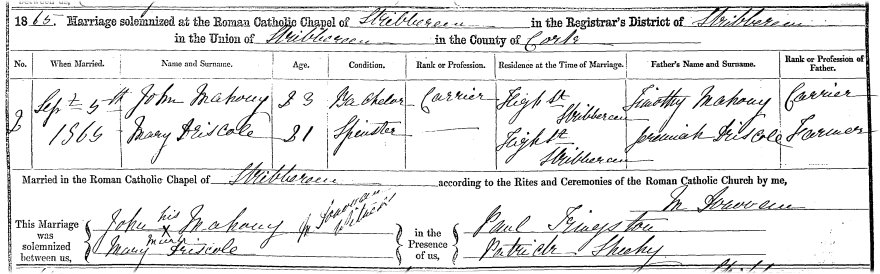 1865. Marriage solemnized at the Roman Catholic Chapel of Skibbereen in the Registrar's District of Skibbereen
in the Union of Skibbereen in the County of Cork
No. When Married. Name and Surname. Age. Condition. Rank or Profession. Residence at the Time of Marriage. Father's Name and Surname. Rank or Profession of Father.
Sept 5th John Mahony 23 Bachelor Carrier High St Skibbereen Timothy Mahony Carrier
1865 Mary Driscole 21 Spinster High St Skibbereen Jeremiah Driscole Farmer
Married in the Roman Catholic Chapel of Skibbereen according to the Rites and Ceremonies of the Roman Catholic Church by me,
This Marriage was solemnized between us, John his x Mahony witness in the Presence of us, Paul Kingston
Mary mark Driscole Patrick Sheehy